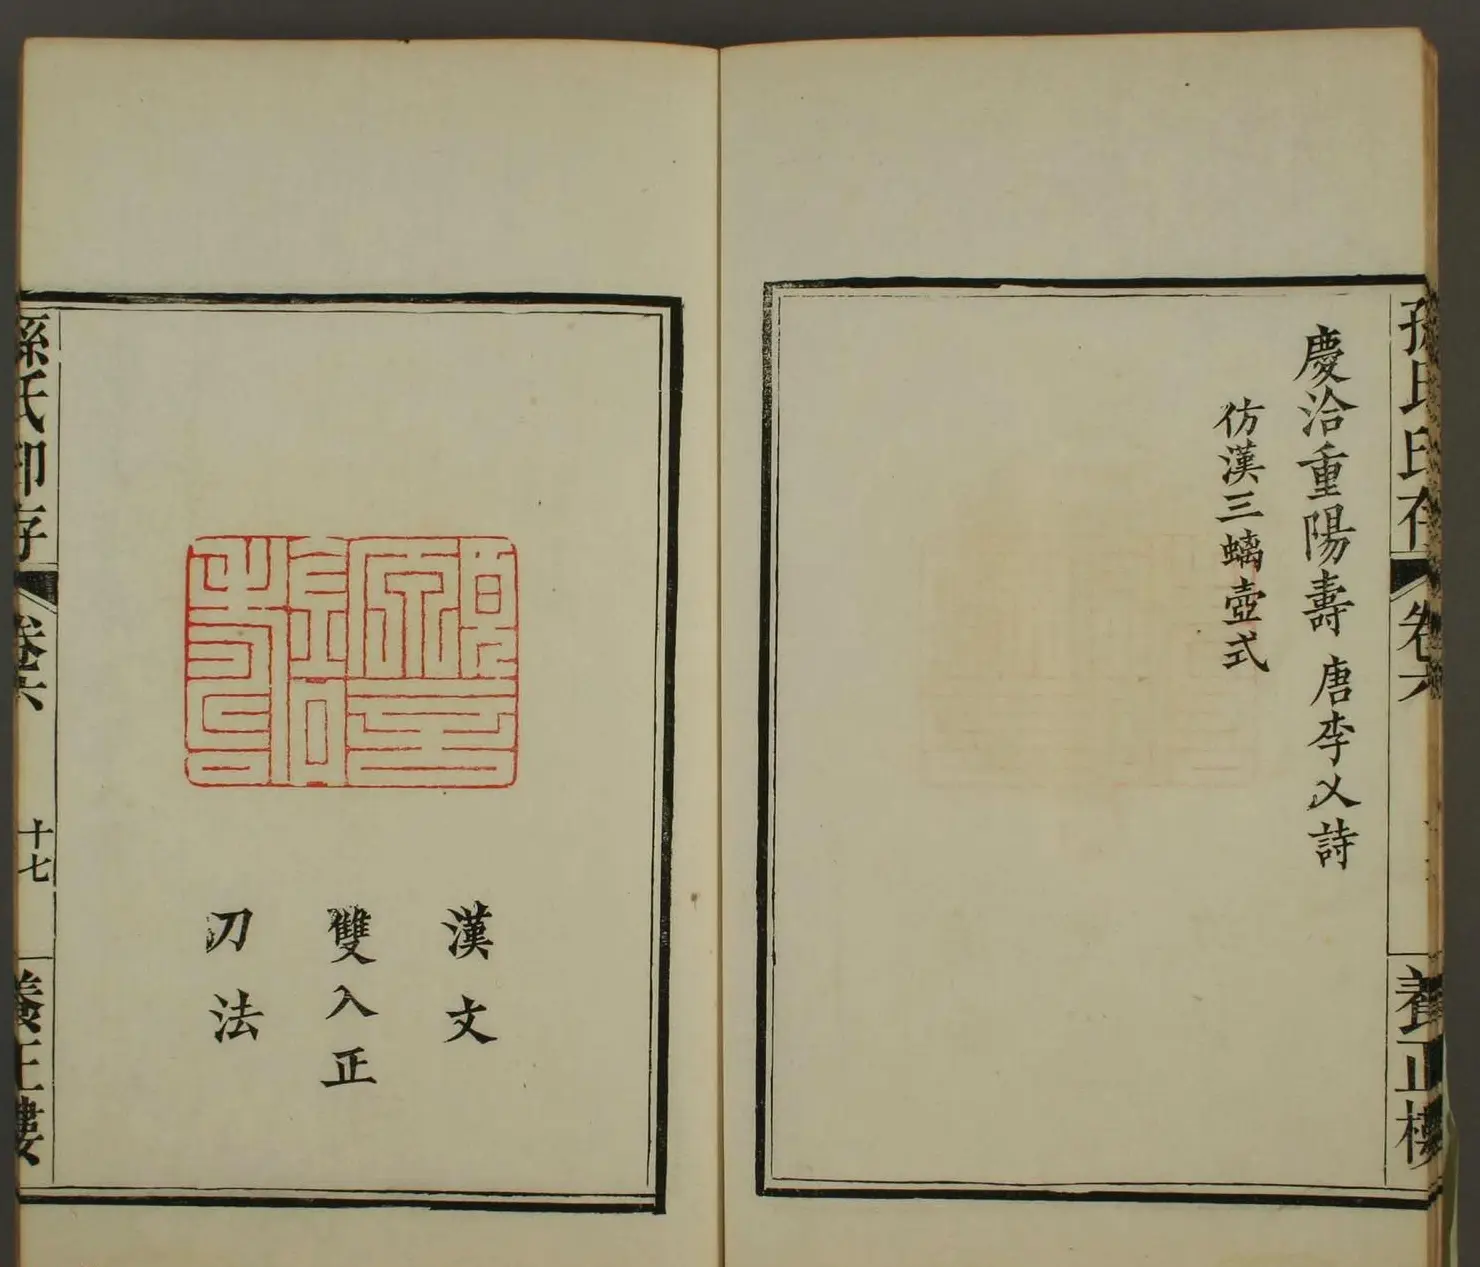 孫氏印存
卷六
養正樓
慶洽重陽壽 唐李乂詩
仿漢三螭壺式
漢文
雙入正
刀法
孫氏印存
卷六
十七
養正樓